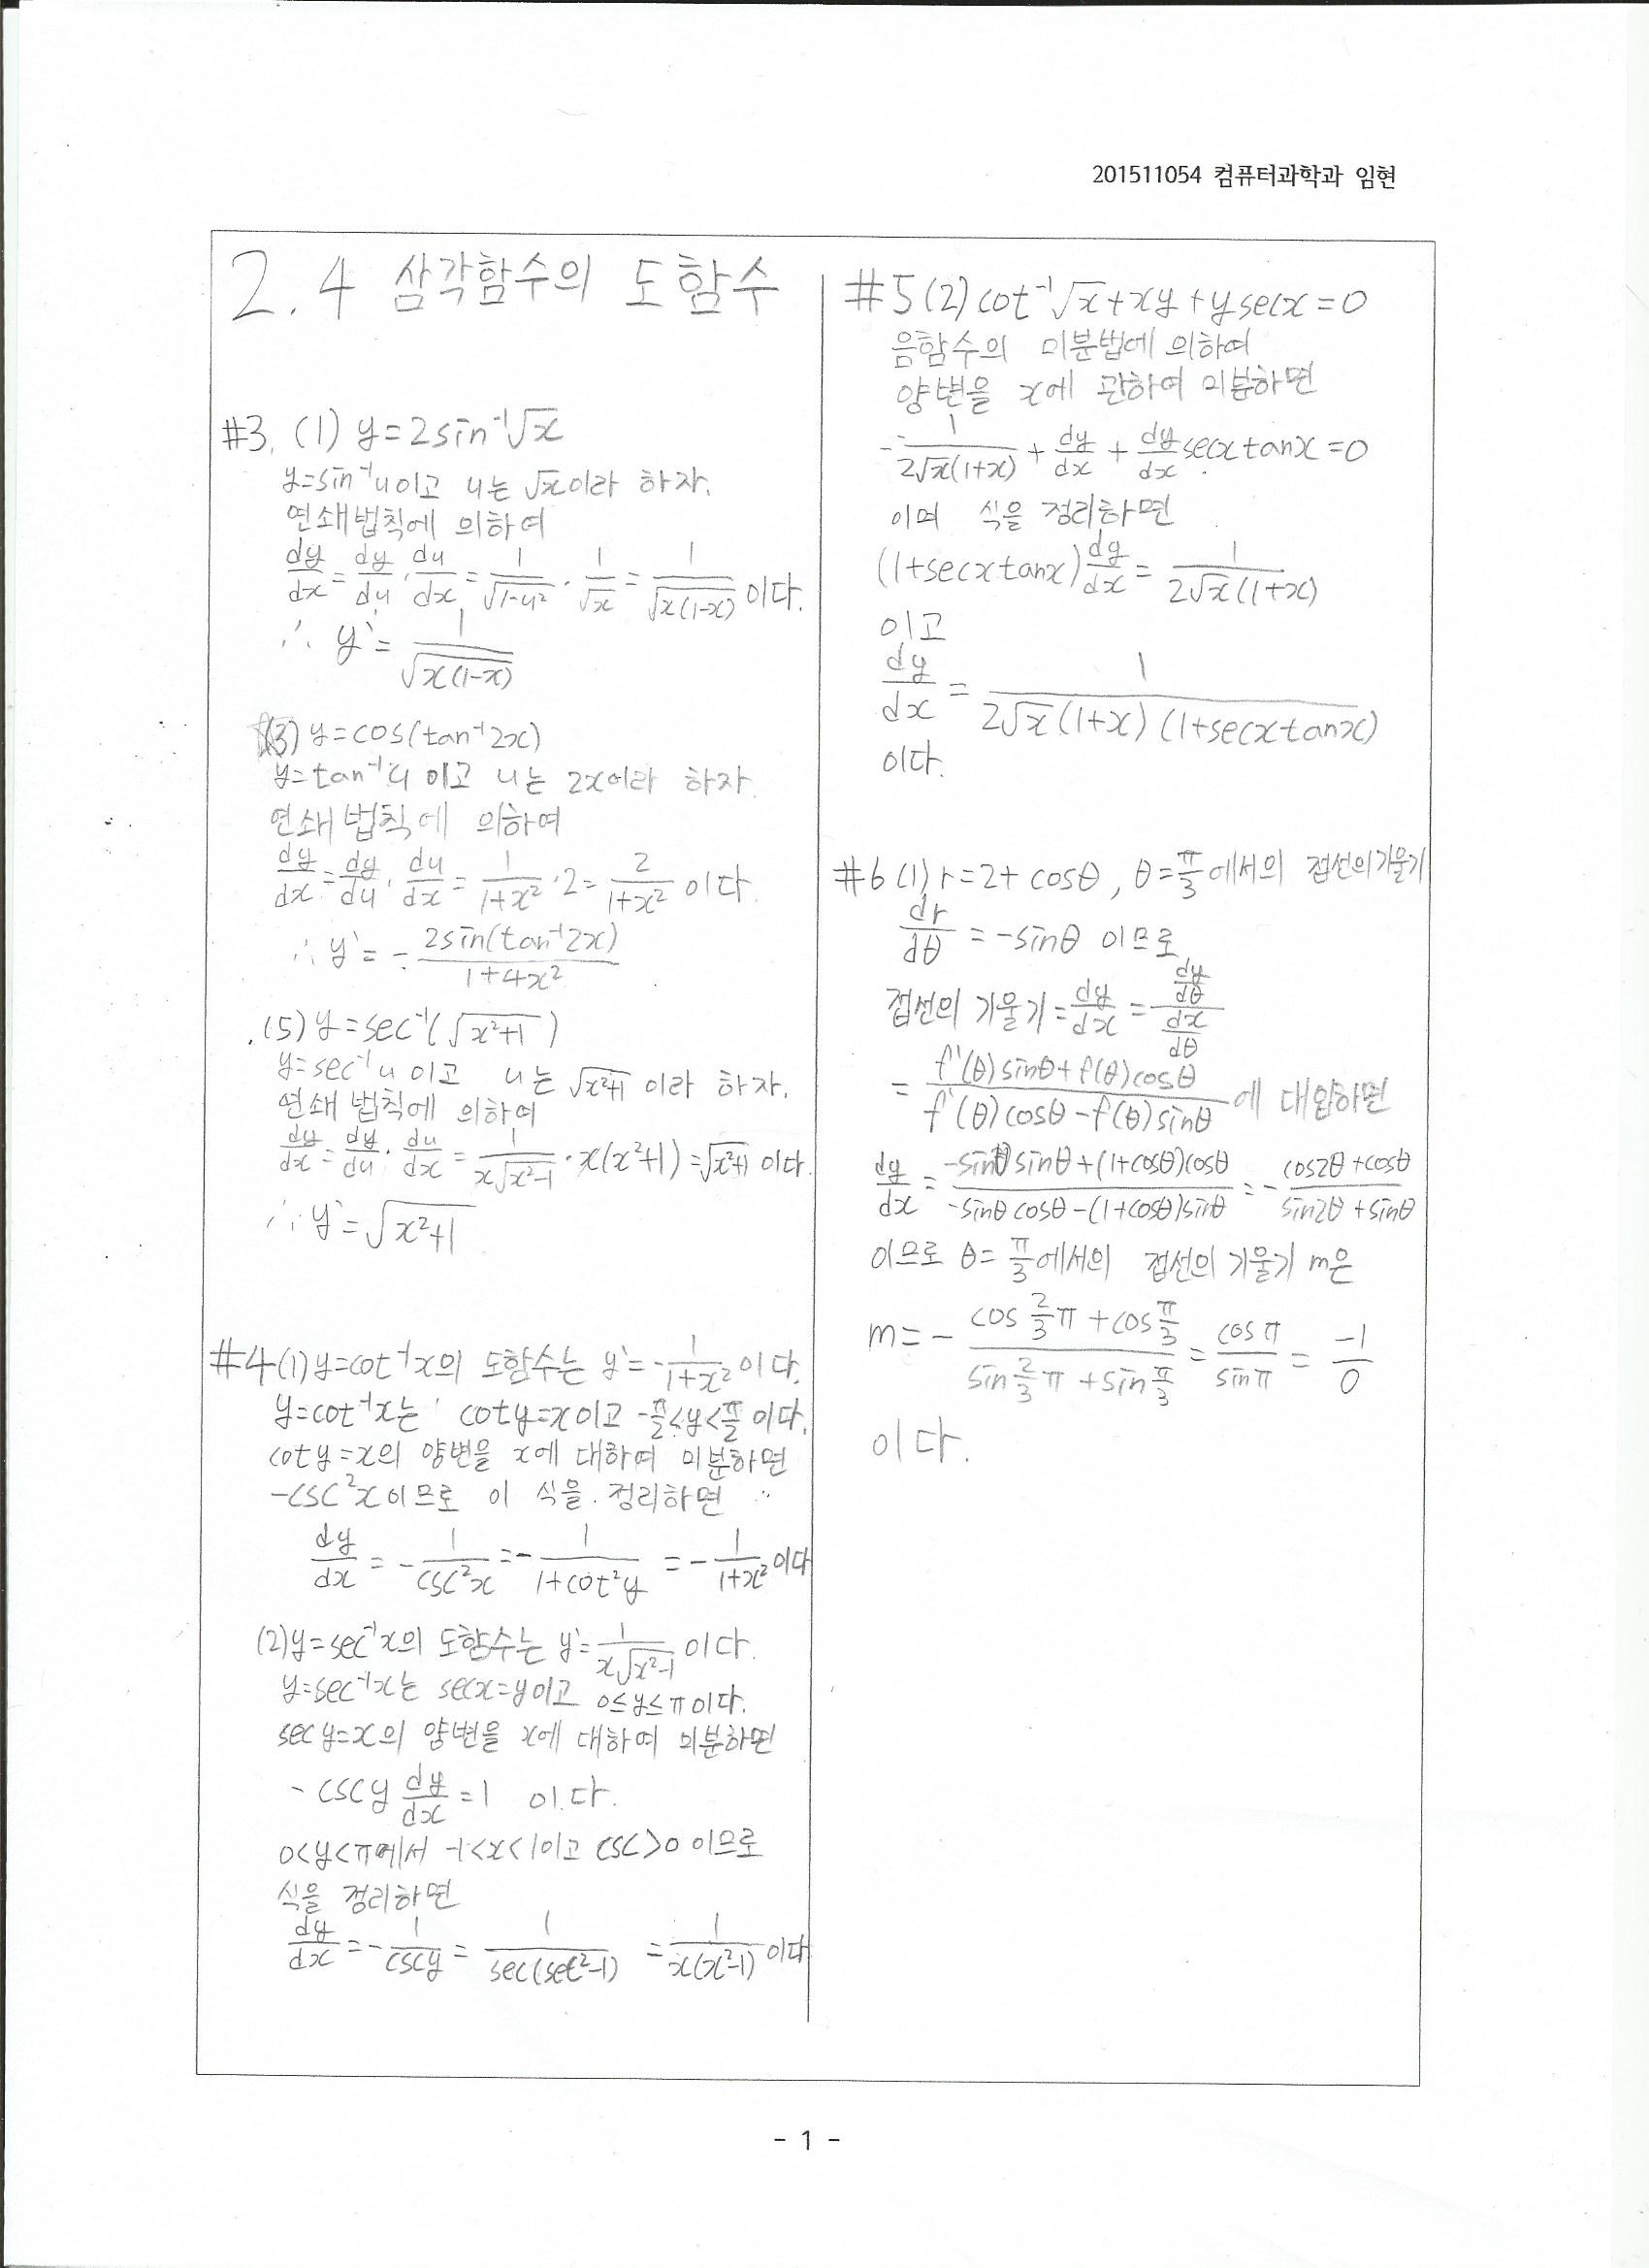 201511054 컴퓨터과학과 임현
2.4 삼각함수의 도함수
#3. (1) y=2sin⁻¹√x
y=sin⁻¹u이고 u는 √x이라 하자.
연쇄법칙에 의하여
dy/dx = dy/du · du/dx = 1/√(1-u²) · 1/√x = 1/√(x(1-x)) 이다.
∴ y` = 1/√(x(1-x))
(3) y=cos(tan⁻¹2x)
y=tan⁻¹u 이고 u는 2x이라 하자.
연쇄법칙에 의하여
dy/dx = dy/du · du/dx = 1/(1+x²) · 2 = 2/(1+x²) 이다.
∴ y` = - 2sin(tan⁻¹2x)/(1+4x²)
(5) y=sec⁻¹(√(x²+1))
y=sec⁻¹u 이고 u는 √(x²+1) 이라 하자.
연쇄법칙에 의하여
dy/dx = dy/du · du/dx = 1/(x√(x²-1)) · x(x²+1) = √(x²+1) 이다.
∴ y` = √(x²+1)
#4 (1) y=cot⁻¹x의 도함수는 y` = -1/(1+x²) 이다.
y=cot⁻¹x는 coty=x이고 -π/2<y<π/2 이다.
coty=x의 양변을 x에 대하여 미분하면
-csc²x이므로 이 식을 정리하면
dy/dx = - 1/csc²x = - 1/(1+cot²y) = - 1/(1+x²) 이다
(2) y=sec⁻¹x의 도함수는 y` = 1/(x√(x²-1)) 이다.
y=sec⁻¹x는 secx=y이고 0≤y≤π이다.
secy=x의 양변을 x에 대하여 미분하면
-cscy dy/dx = 1 이다.
0<y<π에서 -1<x<1이고 csc>0 이므로
식을 정리하면
dy/dx = - 1/cscy = 1/(sec(sec²-1)) = 1/(x(x²-1)) 이다
#5 (2) cot⁻¹√x+xy+ysecx=0
음함수의 미분법에 의하여
양변을 x에 관하여 미분하면
- 1/(2√x(1+x)) + dy/dx + dy/dx secxtanx=0
이며 식을 정리하면
(1+secxtanx) dy/dx = 1/(2√x(1+x))
이고
dy/dx = 1/(2√x(1+x)(1+secxtanx))
이다.
#6 (1) r=2+cosθ, θ=π/3에서의 접선의기울기
dr/dθ = -sinθ 이므로
접선의 기울기 = dy/dx = (dy/dθ)/(dx/dθ)
= (f'(θ)sinθ+f(θ)cosθ)/(f'(θ)cosθ-f(θ)sinθ) 에 대입하면
dy/dx = (-sinθsinθ+(1+cosθ)cosθ)/(-sinθcosθ-(1+cosθ)sinθ) = - (cos2θ+cosθ)/(sin2θ+sinθ)
이므로 θ=π/3에서의 접선의 기울기 m은
m = - (cos 2/3 π + cos π/3)/(sin 2/3 π + sin π/3) = cosπ/sinπ = -1/0
이다.
- 1 -